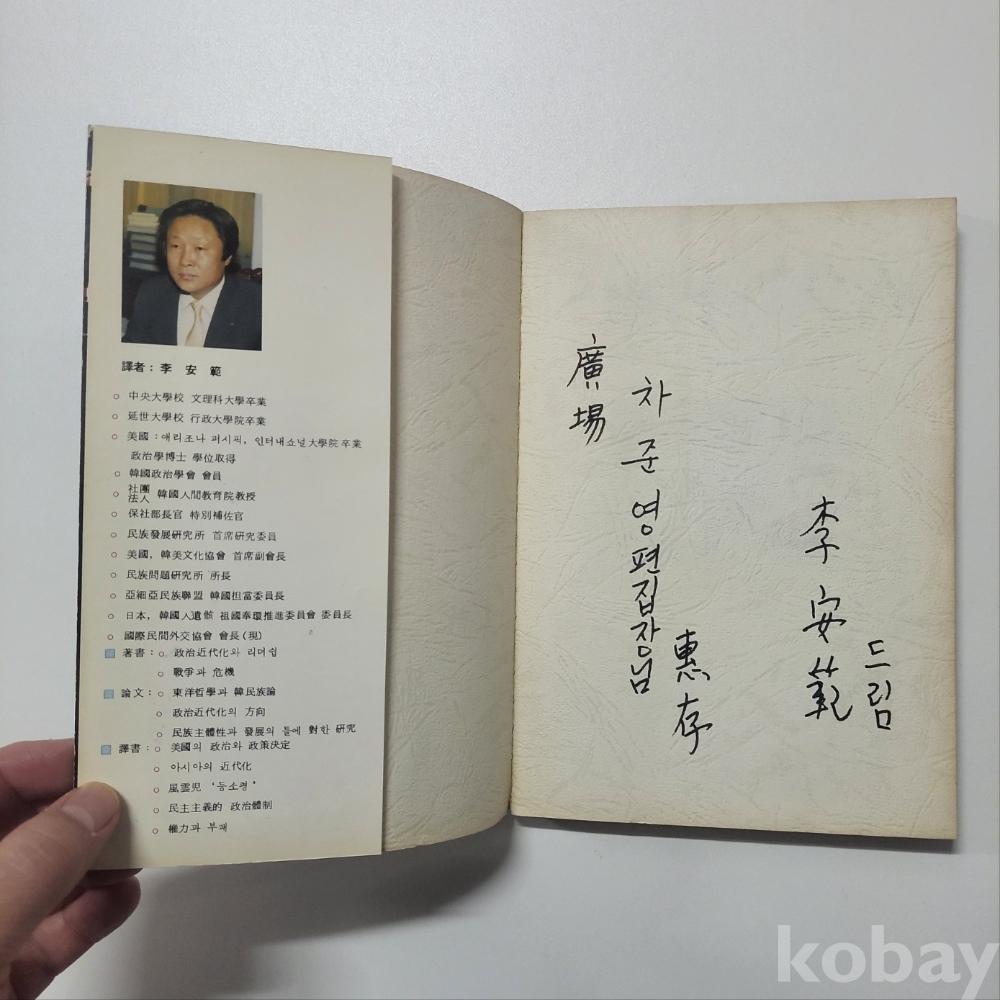 譯者: 李 安 範
中央大學校 文理科大學卒業
延世大學校 行政大學院卒業
美國:애리조나 퍼시픽, 인터내쇼널大學院卒業
政治學博士 學位取得
韓國政治學會 會員
社團法人 韓國人間教育院教授
保社部長官 特別補佐官
民族發展研究所 首席研究委員
美國, 韓美文化協會 首席副會長
民族問題研究所 所長
亞細亞民族聯盟 韓國担當委員長
日本, 韓國人遺骸 祖國奉環推進委員會 委員長
國際民間外交協會 會長(現)
著書: 政治近代化와 리더쉽
戰爭과 危機
論文: 東洋哲學과 韓民族論
政治近代化의 方向
民族主體性과 發展의 틀에 對한 研究
譯書: 美國의 政治와 政策決定
아시아의 近代化
風雲児 '등소평'
民主主義的 政治體制
權力과 부패
廣場
차준영편집장님
惠存
李安範
드림
kobay